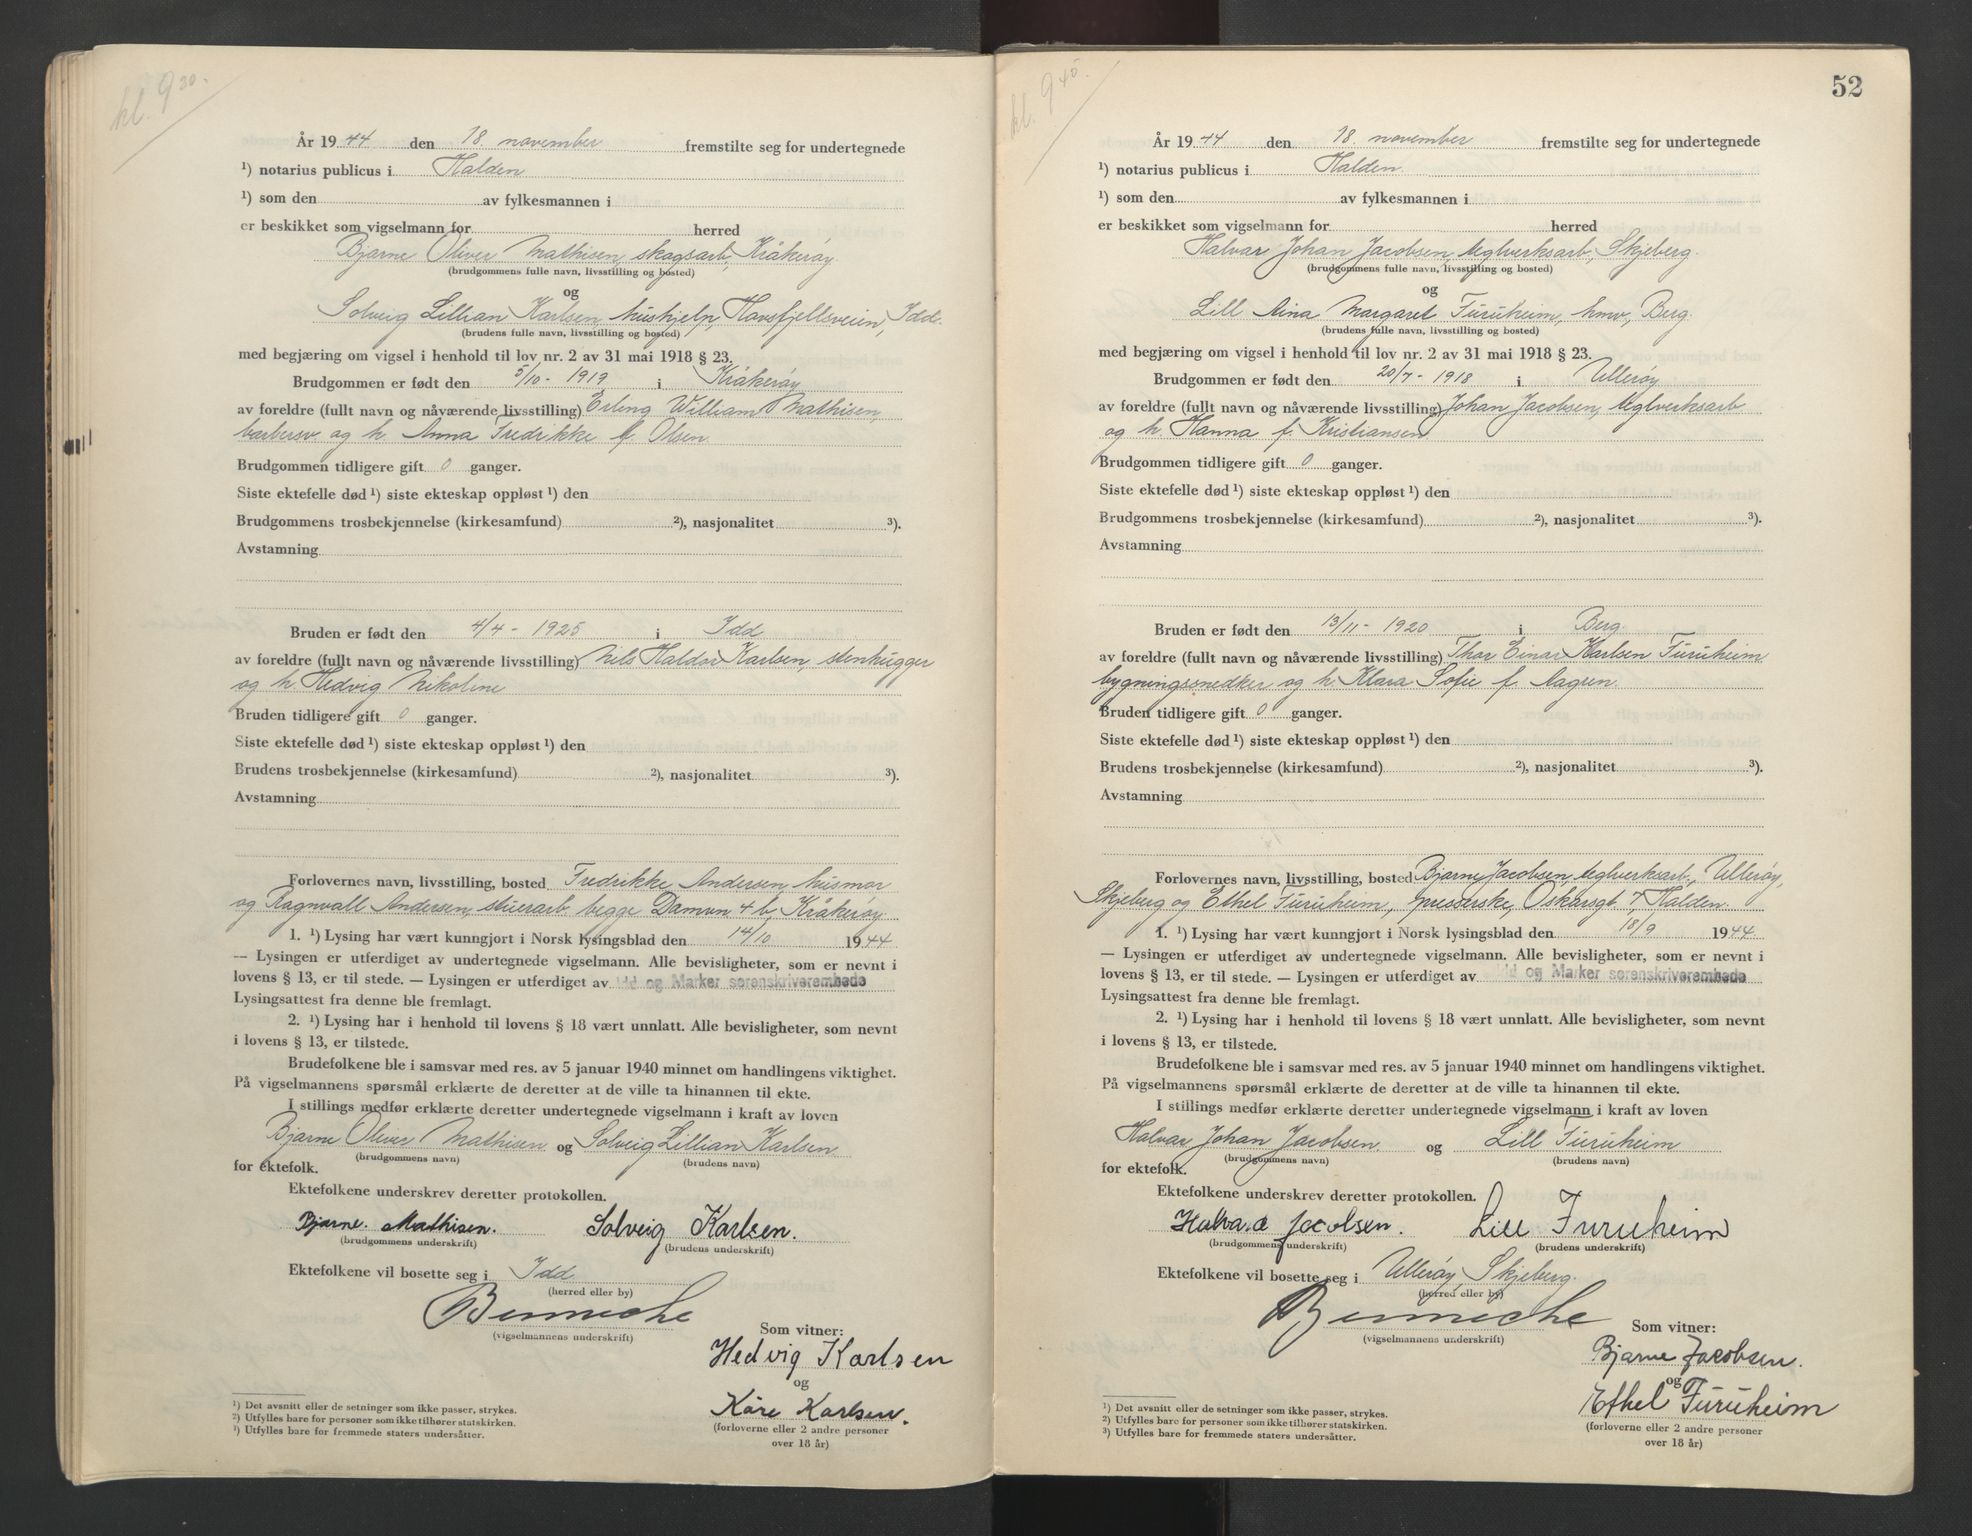 kl. 9 30.
År 1944 den 18. november fremstilte seg for undertegnede
¹) notarius publicus i Halden
¹) som den av fylkesmannen i
er beskikket som vigselmann for herred
Bjarne Oliver Mathisen, skogsarb., Kråkerøy
(brudgommens fulle navn, livsstilling og bosted)
og
Solveig Lillian Karlsen, hushjelp, Havsfjellsveien, Idd.
(brudens fulle navn, livsstilling og bosted)
med begjæring om vigsel i henhold til lov nr. 2 av 31 mai 1918 § 23.
Brudgommen er født den 5/10 - 1919 i Kråkerøy
av foreldre (fullt navn og nåværende livsstilling) Erling William Mathisen,
barbersv. og h. Anna Fredrikke f. Olsen.
Brudgommen tidligere gift 0 ganger.
Siste ektefelle død ¹) siste ekteskap oppløst ¹) den
Brudgommens trosbekjennelse (kirkesamfund) ²), nasjonalitet ³).
Avstamning
Bruden er født den 4/4 - 1925 i Idd
av foreldre (fullt navn og nåværende livsstilling) Nils Haldor Karlsen, stenhugger
og h. Hedvig Nikoline
Bruden tidligere gift 0 ganger.
Siste ektefelle død ¹) siste ekteskap oppløst ¹) den
Brudens trosbekjennelse (kirkesamfund) ²), nasjonalitet ³).
Avstamning
Forlovernes navn, livsstilling, bosted Fredrikke Andersen, husmor
og Ragnvall Andersen, stuerarb. begge Damvn 4 b, Kråkerøy
1. ¹) Lysing har vært kunngjort i Norsk lysingsblad den 14/10 1944
— Lysingen er utferdiget av undertegnede vigselmann. Alle bevisligheter, som er nevnt i
lovens § 13, er til stede. — Lysingen er utferdiget av Idd og Marker sorenskriverembede
Lysingsattest fra denne ble fremlagt.
2. ¹) Lysing har i henhold til lovens § 18 vært unnlatt. Alle bevisligheter, som nevnt
i lovens § 13, er tilstede.
Brudefolkene ble i samsvar med res. av 5 januar 1940 minnet om handlingens viktighet.
På vigselmannens spørsmål erklærte de deretter at de ville ta hinannen til ekte.
I stillings medfør erklærte deretter undertegnede vigselmann i kraft av loven
Bjarne Oliver Mathisen og Solveig Lillian Karlsen
(brudgommens navn) (brudens navn)
for ektefolk.
Ektefolkene underskrev deretter protokollen.
Bjarne. Mathisen. Solveig Karlsen.
(brudgommens underskrift) (brudens underskrift)
Ektefolkene vil bosette seg i Idd
(herred eller by)
(vigselmannens underskrift)
Som vitner:
Hedvig Karlsen
og
Kåre Karlsen.
(forloverne eller 2 andre personer
over 18 år)
¹) Det avsnitt eller de setninger som ikke passer, strykes.
²) Utfylles bare for personer som ikke tilhører statskirken.
³) Utfylles bare for fremmede staters undersåtter.
kl. 9 45.
52
År 1944 den 18. november fremstilte seg for undertegnede
¹) notarius publicus i Halden.
¹) som den av fylkesmannen i
er beskikket som vigselmann for herred
Halvar Johan Jacobsen, teglverksarb., Skjeberg.
(brudgommens fulle navn, livsstilling og bosted)
og
Lill Aina Margaret Furuheim, hmv., Berg.
(brudens fulle navn, livsstilling og bosted)
med begjæring om vigsel i henhold til lov nr. 2 av 31 mai 1918 § 23.
Brudgommen er født den 20/7 - 1918 i Ullerøy
av foreldre (fullt navn og nåværende livsstilling) Johan Jacobsen, teglverksarb
og h. Hanna f. Kristiansen
Brudgommen tidligere gift 0 ganger.
Siste ektefelle død ¹) siste ekteskap oppløst ¹) den
Brudgommens trosbekjennelse (kirkesamfund) ²), nasjonalitet ³).
Avstamning
Bruden er født den 13/11 - 1920 i Berg.
av foreldre (fullt navn og nåværende livsstilling) Thor Einar Karlsen Furuheim
bygningssnedker og h. Klara Sofie f. Aagren.
Bruden tidligere gift 0 ganger.
Siste ektefelle død ¹) siste ekteskap oppløst ¹) den
Brudens trosbekjennelse (kirkesamfund) ²), nasjonalitet ³).
Avstamning
Forlovernes navn, livsstilling, bosted Bjarne Jacobsen, teglverksarb., Ullerøy,
Skjeberg og Ethel Furuheim, presserske, Oskarsgt. 7, Halden.
1. ¹) Lysing har vært kunngjort i Norsk lysingsblad den 18/9 1944
— Lysingen er utferdiget av undertegnede vigselmann. Alle bevisligheter, som er nevnt i
lovens § 13, er til stede. — Lysingen er utferdiget av Idd og Marker sorenskriverembede
Lysingsattest fra denne ble fremlagt.
2. ¹) Lysing har i henhold til lovens § 18 vært unnlatt. Alle bevisligheter, som nevnt
i lovens § 13, er tilstede.
Brudefolkene ble i samsvar med res. av 5 januar 1940 minnet om handlingens viktighet.
På vigselmannens spørsmål erklærte de deretter at de ville ta hinannen til ekte.
I stillings medfør erklærte deretter undertegnede vigselmann i kraft av loven
Halvar Johan Jacobsen. og Lill Furuheim
(brudgommens navn) (brudens navn)
for ektefolk.
Ektefolkene underskrev deretter protokollen.
Halvar Jacobsen. Lill Furuheim
(brudgommens underskrift) (brudens underskrift)
Ektefolkene vil bosette seg i Ullerøy, Skjeberg.
(herred eller by)
(vigselmannens underskrift)
Som vitner:
Bjarne Jacobsen.
og
Ethel Furuheim
(forloverne eller 2 andre personer
over 18 år)
¹) Det avsnitt eller de setninger som ikke passer, strykes.
²) Utfylles bare for personer som ikke tilhører statskirken.
³) Utfylles bare for fremmede staters undersåtter.